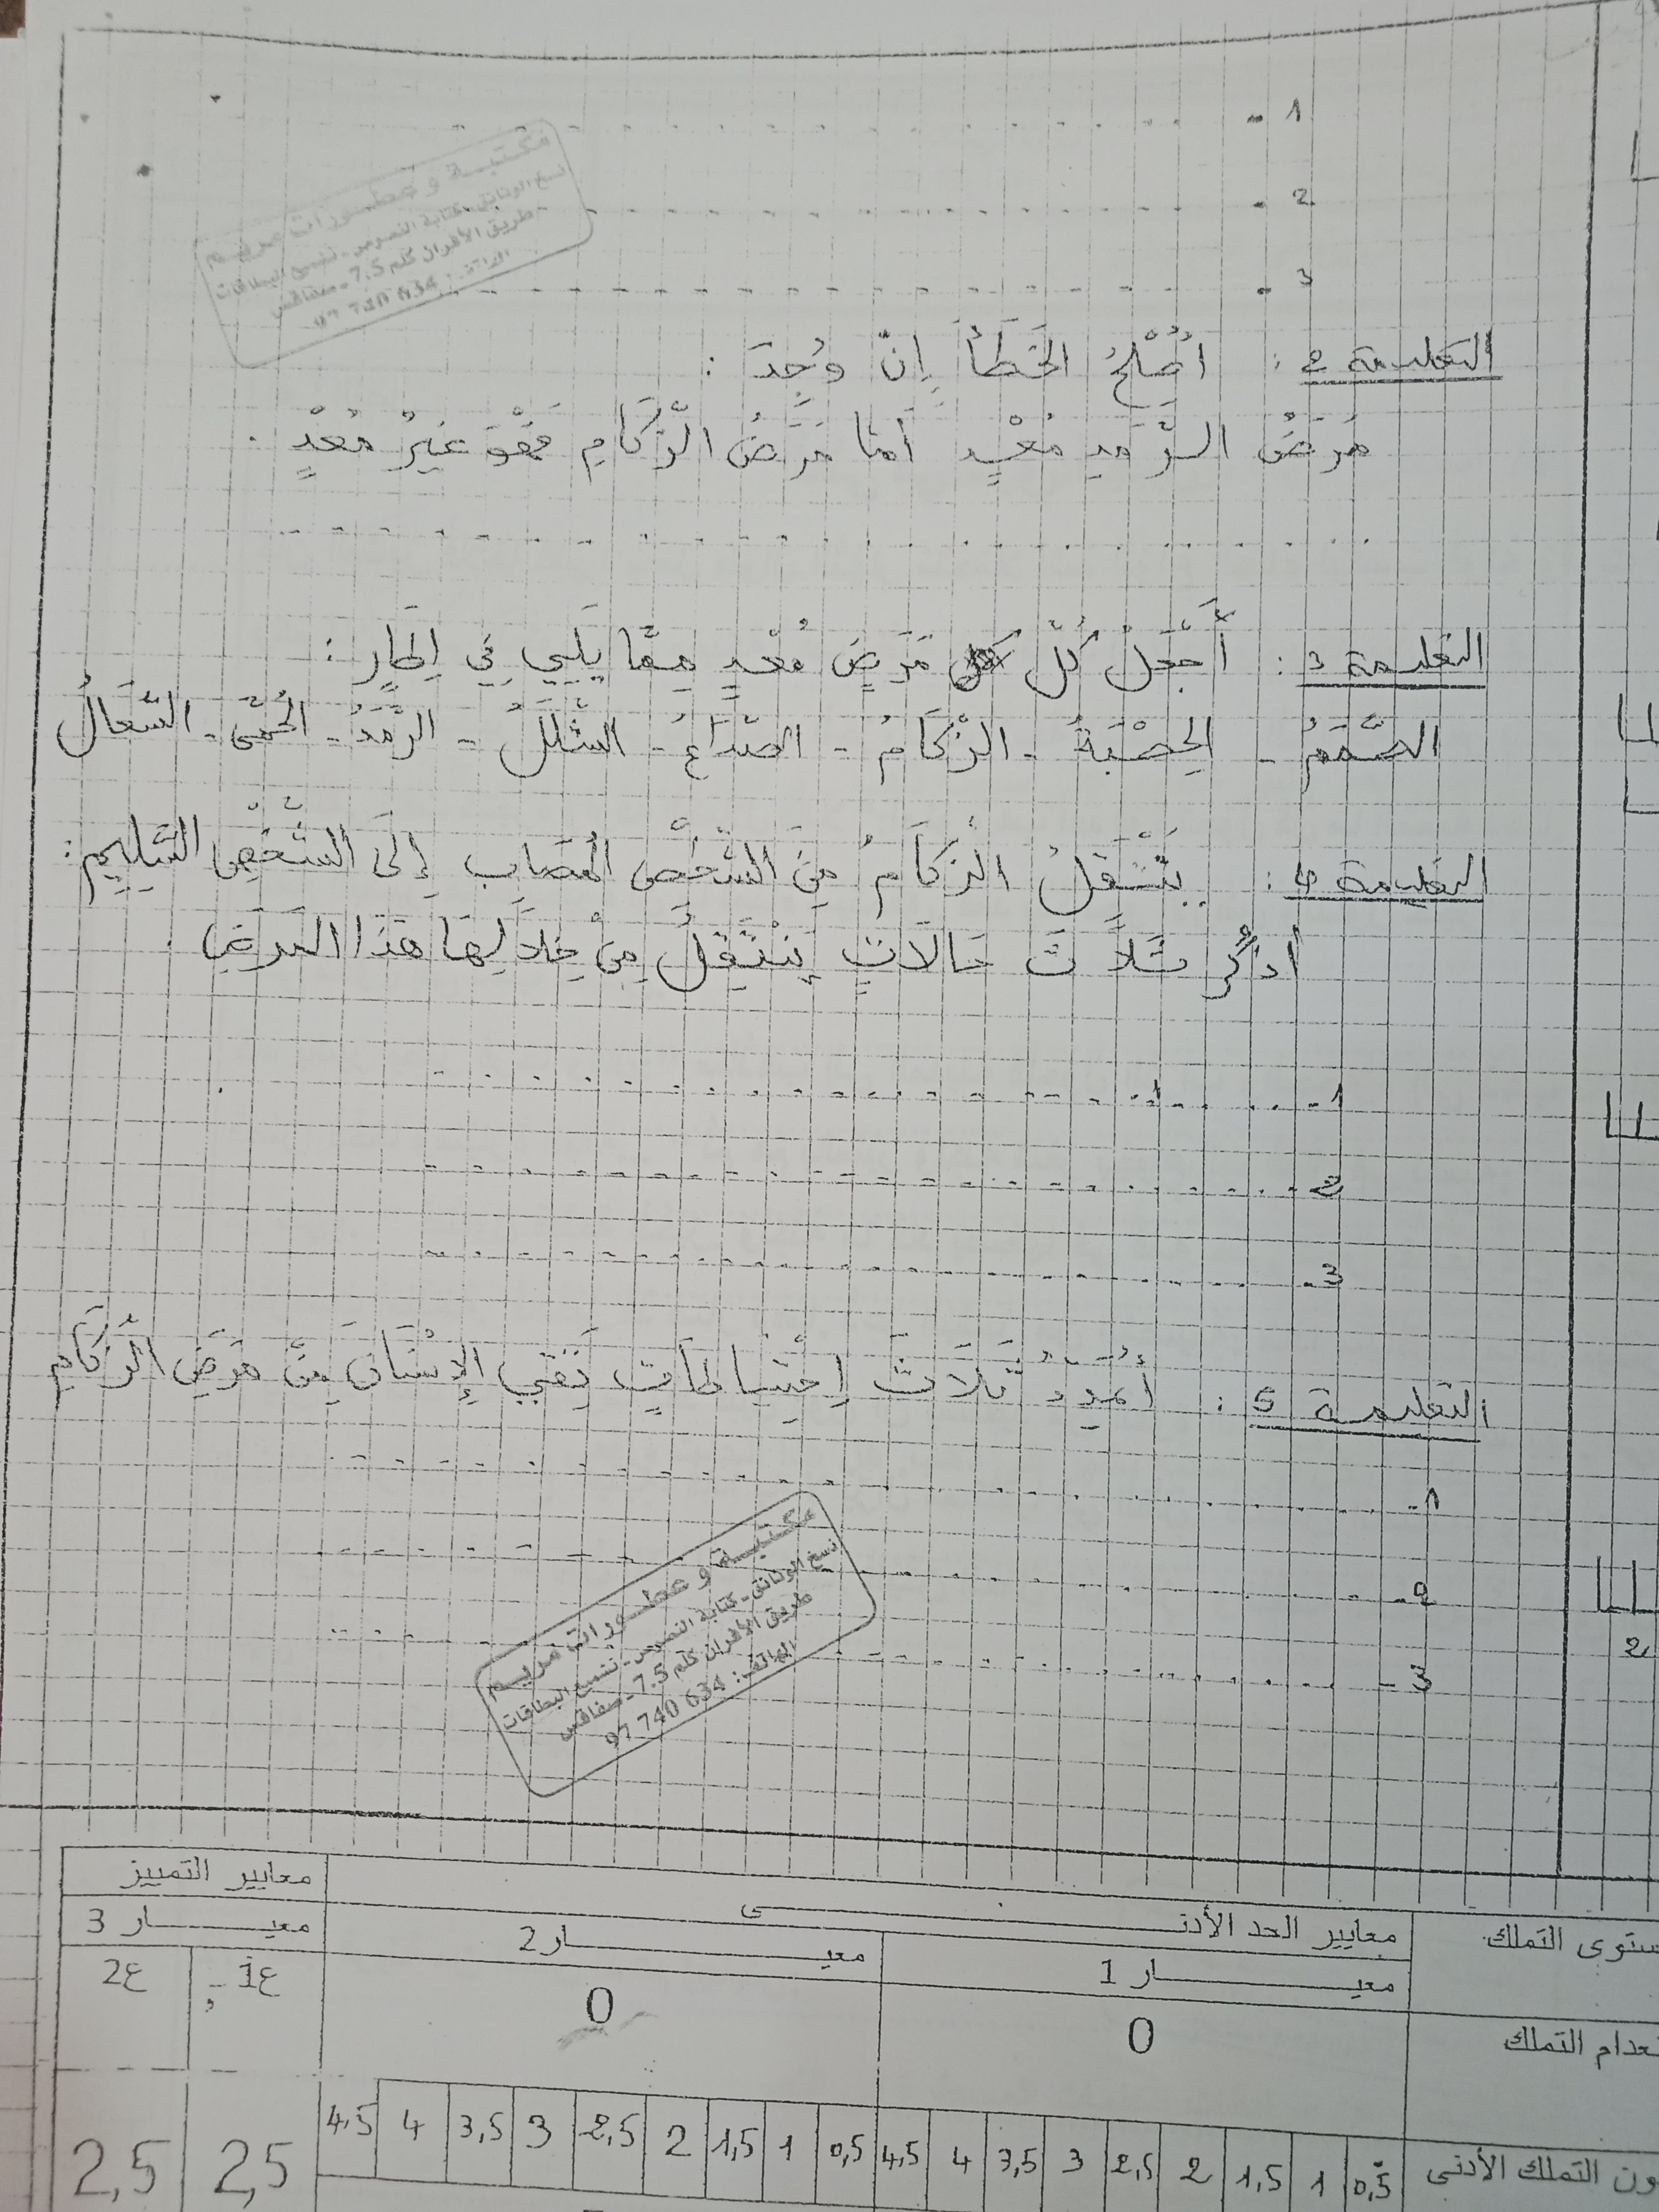 1 -
2 -
3 -
مكتبة وعطورات مريم
نسخ الوثائق - كتابة النصوص - تشميع البطاقات
طريق الأفران كلم 7.5 - صفاقس
الهاتف: 97 740 634
التعليمة 2 : أُصْلِحُ الخَطَأَ إِنْ وُجِدَ :
مَرَضُ الرَّمَدِ مُعْدٍ أَمَّا مَرَضُ الزُّكَامِ فَهْوَ غَيْرُ مُعْدٍ .
التعليمة 3 : أَجْعَلُ كُلَّ مَرَضٍ مُعْدٍ مِمَّا يَلِيي فِي إِطَارٍ :
الصَّمَمُ - الحَصْبَةُ - الزُّكَامُ - الصُّدَاعُ - الشَّلَلُ - الرَّمَدُ - الحُمَّى - السُّعَالُ
التعليمة 4 : يَنْتَقِلُ الزُّكَامُ مِنَ الشَّخْصِ المُصَابِ إِلَى الشَّخْصِ السَّلِيمِ :
أَذْكُرُ ثَلَاثَ حَالَاتٍ يَنْتَقِلُ مِنْ خِلَالِهَا هَذَا المَرَضُ .
1 -
2 -
3 -
التعليمة 5 : ثَلَاثَ اِحْتِيَاطَاتٍ تَقِي الإِنْسَانَ مِنْ مَرَضِ الزُّكَامِ
1 -
2 -
3 -
مكتبة وعطورات مريم
نسخ الوثائق - كتابة النصوص - تشميع البطاقات
طريق الأفران كلم 7.5 - صفاقس
الهاتف: 97 740 634
2
ستوى التملك معايير الحد الأدنى معايير التمييز
معيار 1 معيار 2 معيار 3
ع1 ع2
نعدام التملك 0 0
ون التملك الأدنى 0,5 1 1,5 2 2,5 3 3,5 4 4,5 0,5 1 1,5 2 2,5 3 3,5 4 4,5 2,5 2,5